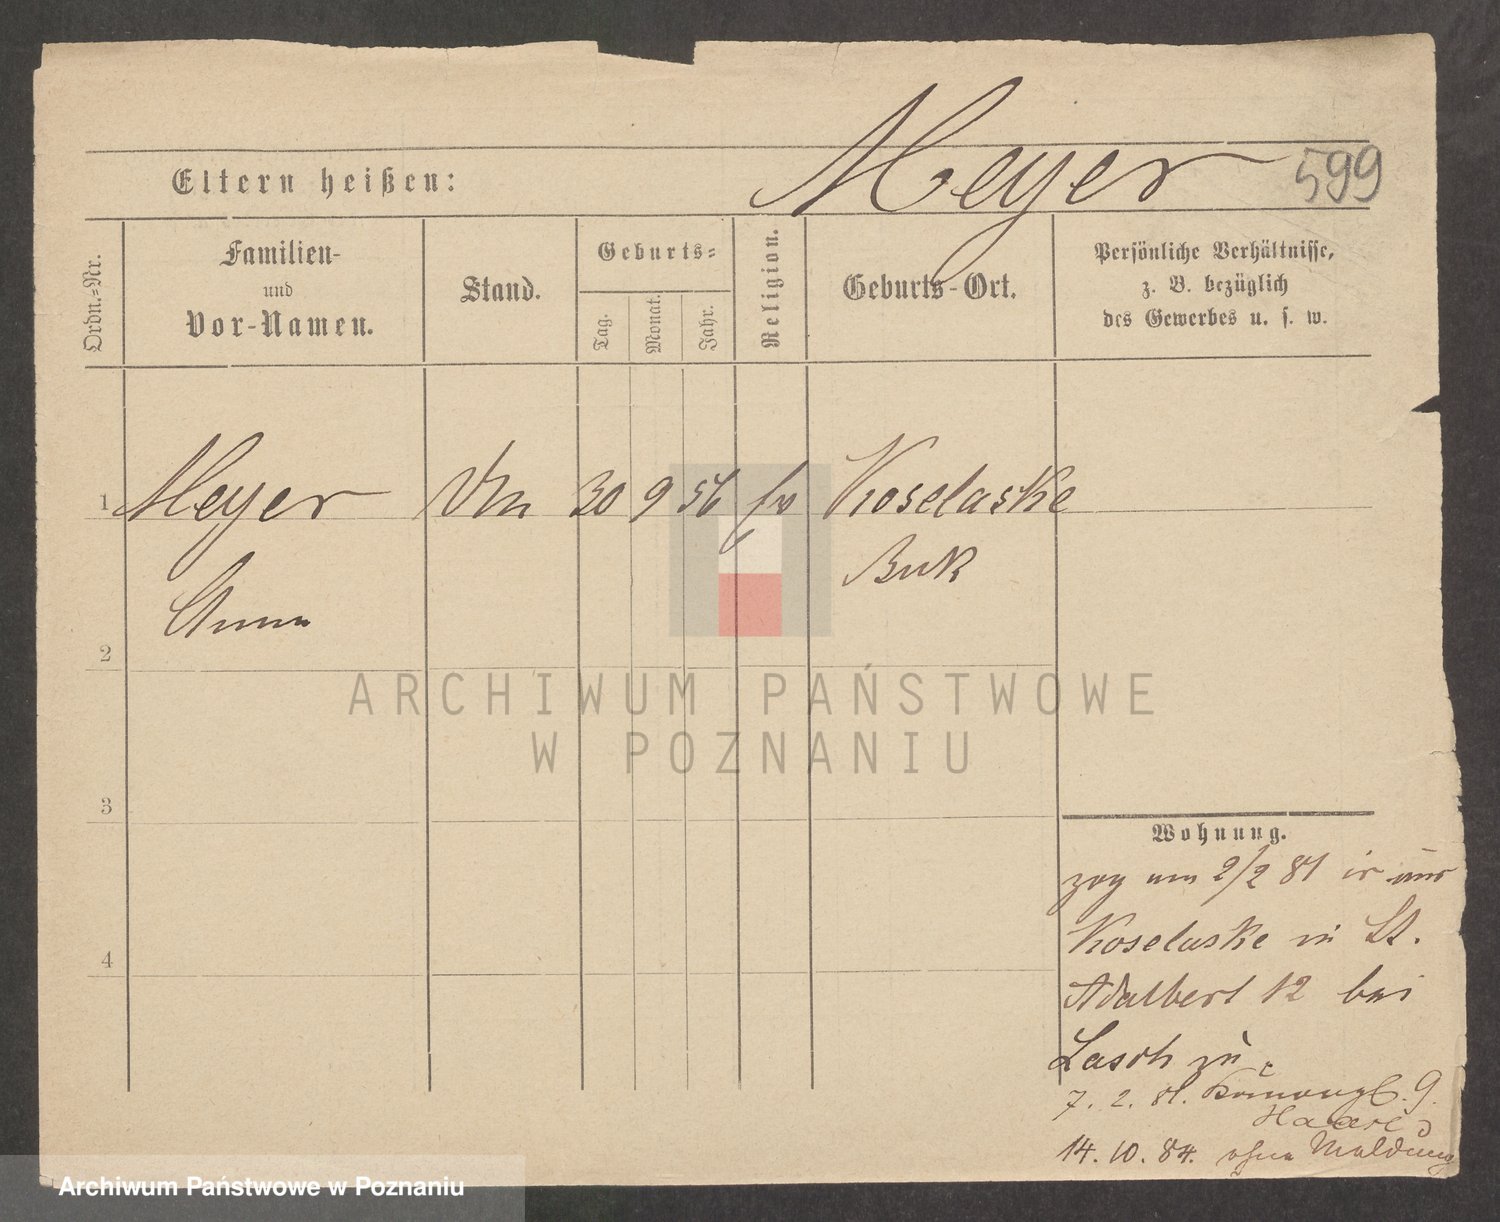 Meyer 599
Eltern heißen:
Ordn.-Nr.
Familien-
und
Vor-Namen.
Stand.
Geburts-
Tag.
Monat.
Jahr.
Religion.
Geburts-Ort.
Persönliche Verhältnisse,
z. B. bezüglich
des Gewerbes u. s. w.
1 Meyer 30 9 56 Koselaske
Buk
Anna
2
3
4
ARCHIWUM PAŃSTWOWE
W POZNANIU
Wohnung.
zog am 2/2 81 aus
Koselaske in St.
Adalbert 12 bei
Lasch zu.
7. 2. 81. 9.
14. 10. 84. ohne Meldung
Archiwum Państwowe w Poznaniu